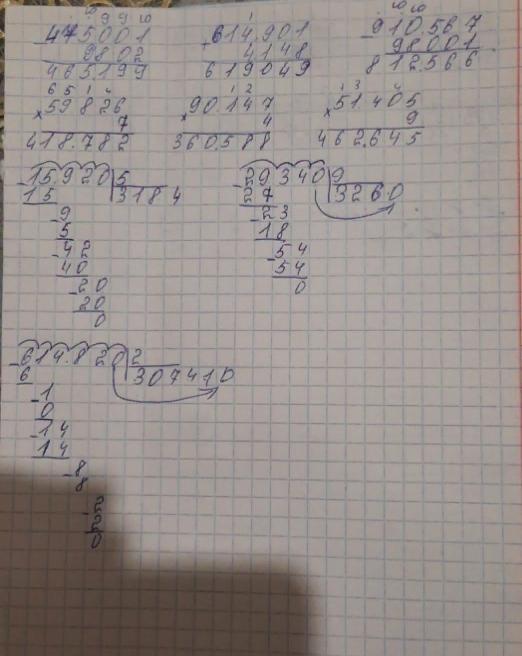 10 9 9 10
- 475.001
9802
465199
1
+ 614.901
4148
619049
10 10 10
- 910.567
98001
812.566
6 5 1 4
× 59826
7
418.782
1 2
× 90.147
4
360.588
1 3 4
× 51.405
9
462.645
- 15920 5
15 3184
- 9
5
- 42
40
- 20
20
0
- 29340 9
27 3260
- 23
18
- 54
54
0
- 614.820 2
6 307410
- 1
0
- 14
14
- 8
8
- 2
2
0